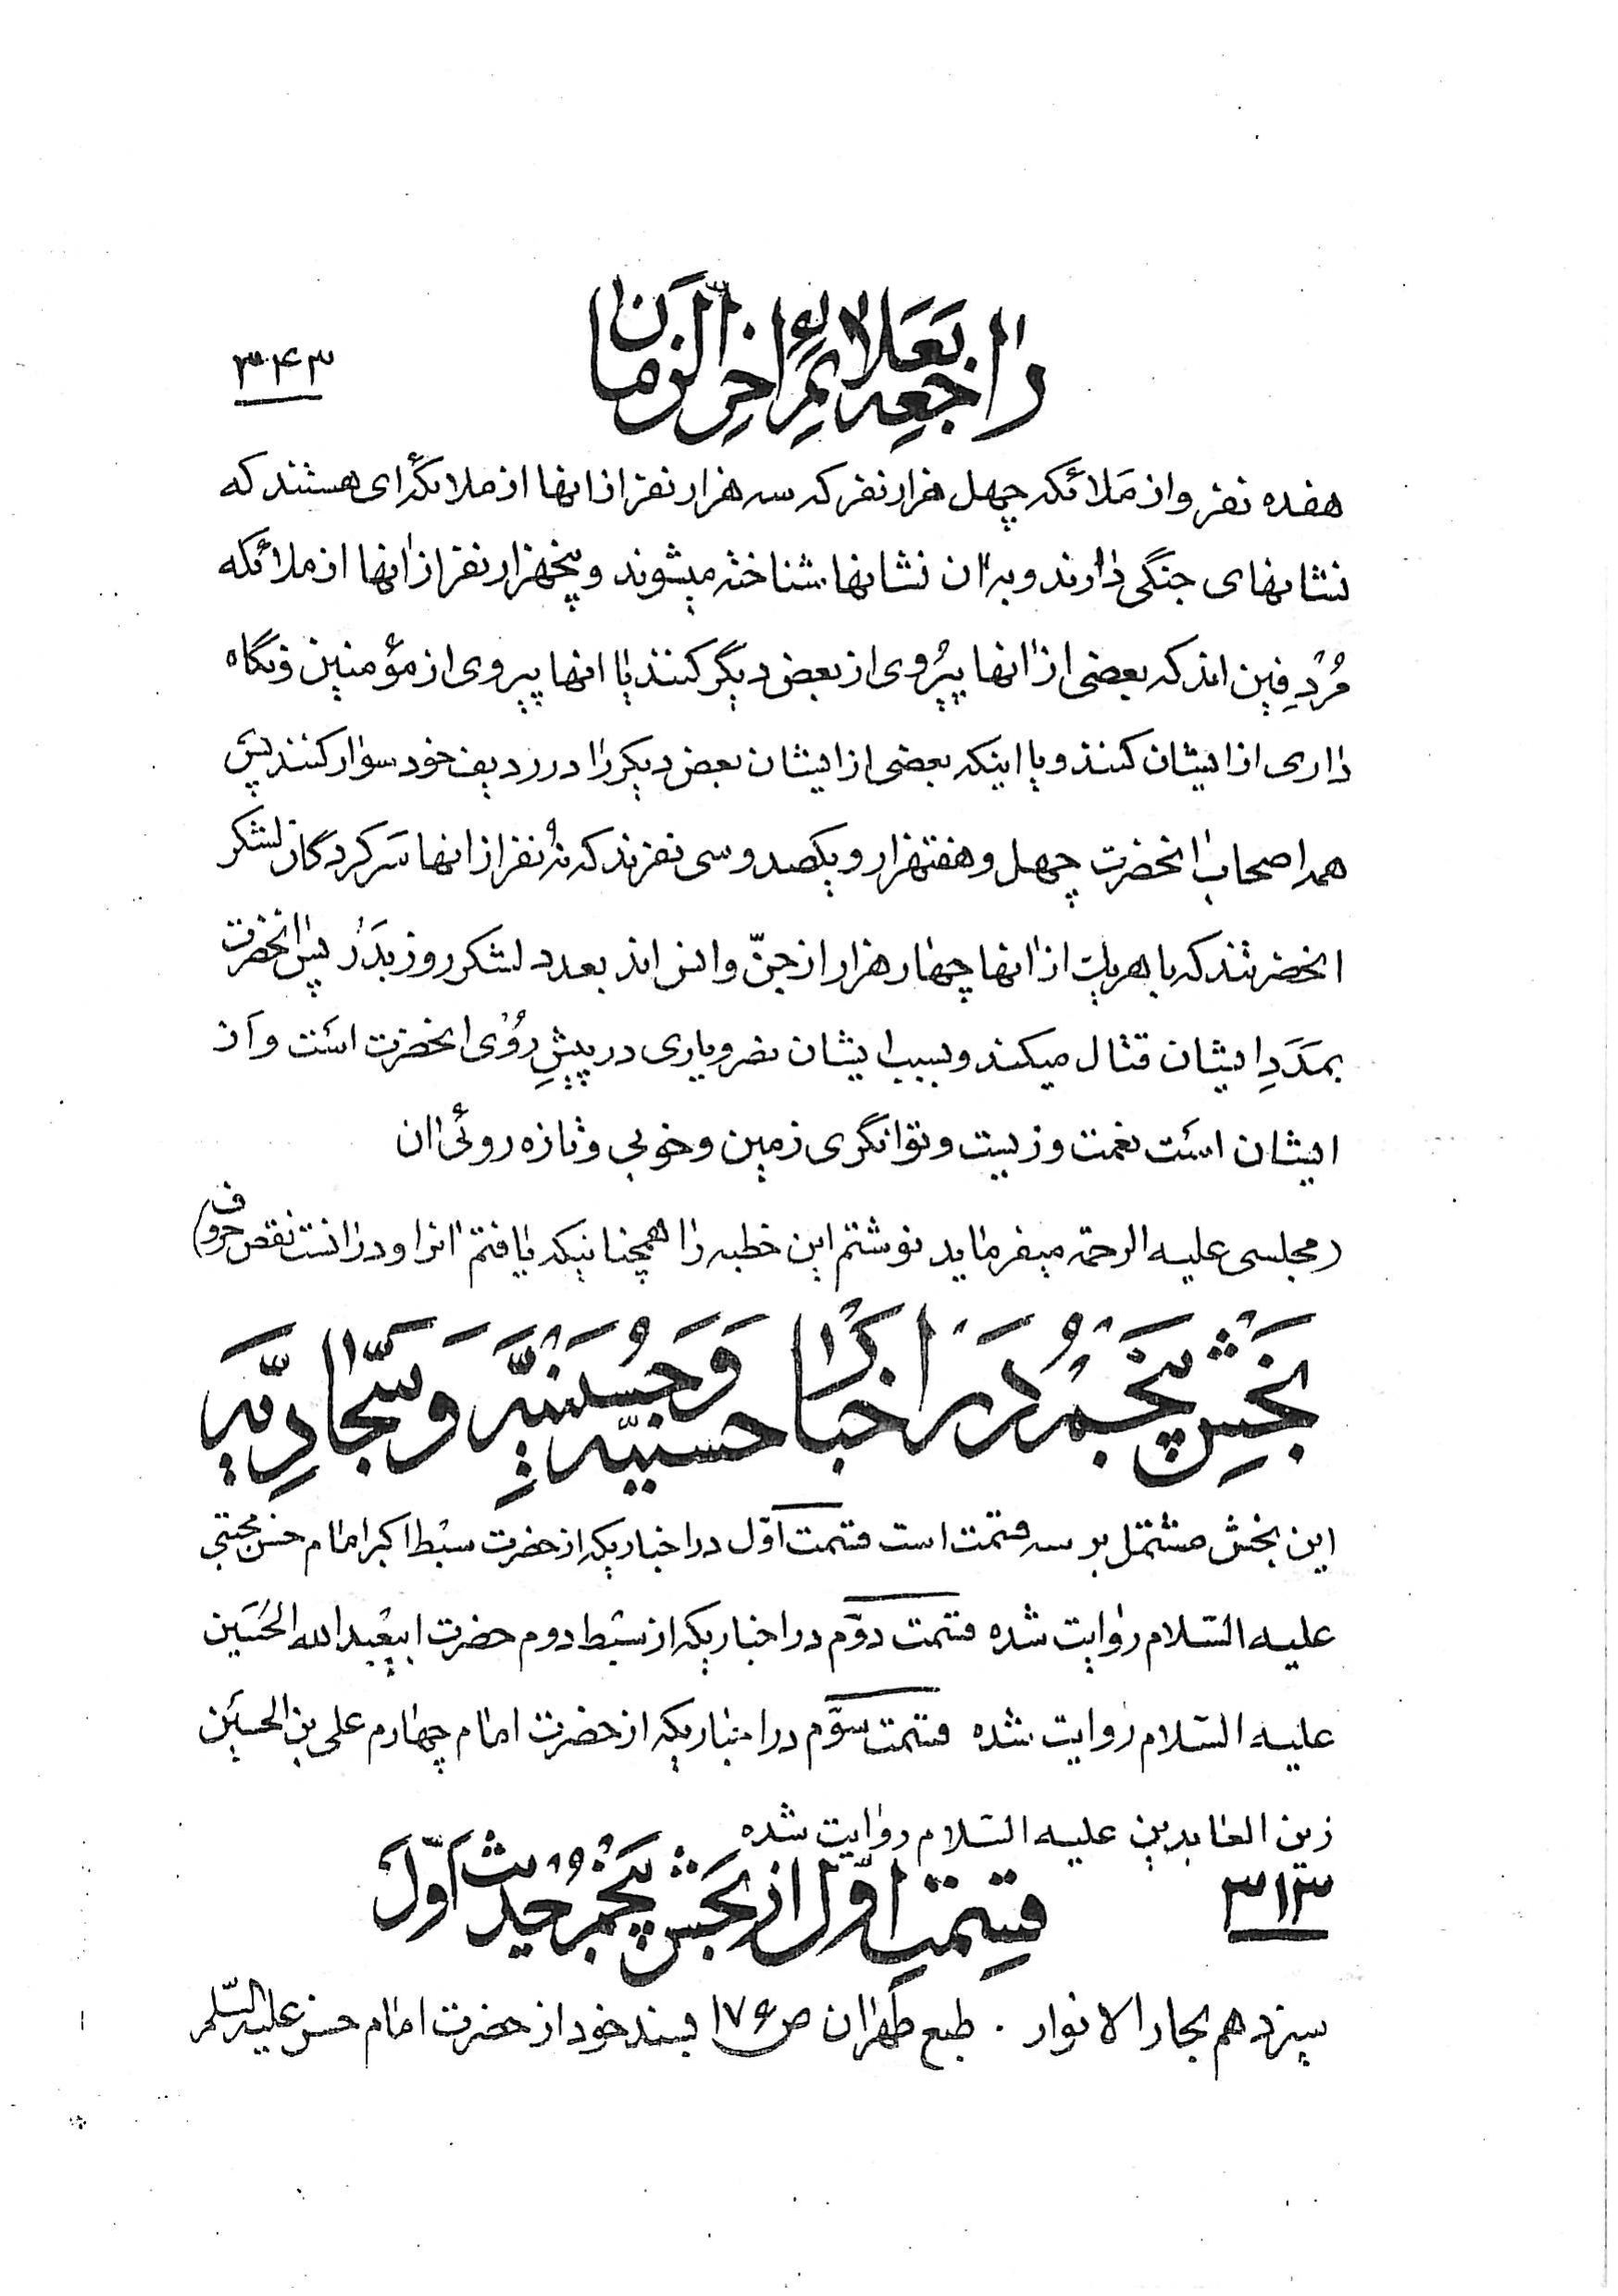 راجعه بعلائم اخر الزمان
۳۴۳
هفده نفر و از ملائکه چهل هزار نفر که سه هزار نفر از انها از ملائکه‌ای هستند که
نشانهای جنگی دارند و به ان نشانها شناخته میشوند و پنجهزار نفر از انها از ملائکه
مُرْدِفین اند که بعضی از انها پیرُوی از بعض دیگر کنند یا انها پیروی از مؤمنین و نگاه
داری از ایشان کنند و یا اینکه بعضی از ایشان بعض دیگر را در ردیف خود سوار کنند پس
همه اصحاب انحضرت چهل و هفتهزار و یکصد و سی نفرند که نُه نفر از انها سَر کردگان لشکر
انحضرتند که با هر یک از انها چهار هزار از جنّ و انس اند بعدد لشکر روز بَدْر پس انحضرت
بمَدَدِ ایشان قتال میکند و بسبب ایشان نصر و یاری در پیشِ رُوْی انحضرت است و از
ایشان است نعمت و زینت و توانگری زمین و خوبی و تازه روئی ان
(مجلسی علیه الرحمه میفرماید نوشتم این خطبه را همچنانیکه یافتم انرا و در انست نقص حروف)
بخش پنجم در اخبار حسنیّه و حسینیّه و سجّادیّه
این بخش مشتمل بر سه قسمت است قسمت اوّل در اخباریکه از حضرت سبط اکبر امام حسن مجتبی
علیه السّلام روایت شده قسمت دوّم در اخباریکه از سبط دوم حضرت ابیعبد الله الحُسَین
علیه السّلام روایت شده قسمت سوّم در اخباریکه از حضرت امام چهارم علی بن الحسین
زین العابدین علیه السّلام روایت شده
۳۱۳
قسمت اوّل از بخش پنجم حدیث اوّل
سیزدهم بحار الانوار . طبع طهران ص ۱۷۶ بسند خود از حضرت امام حسن علیه السّلم